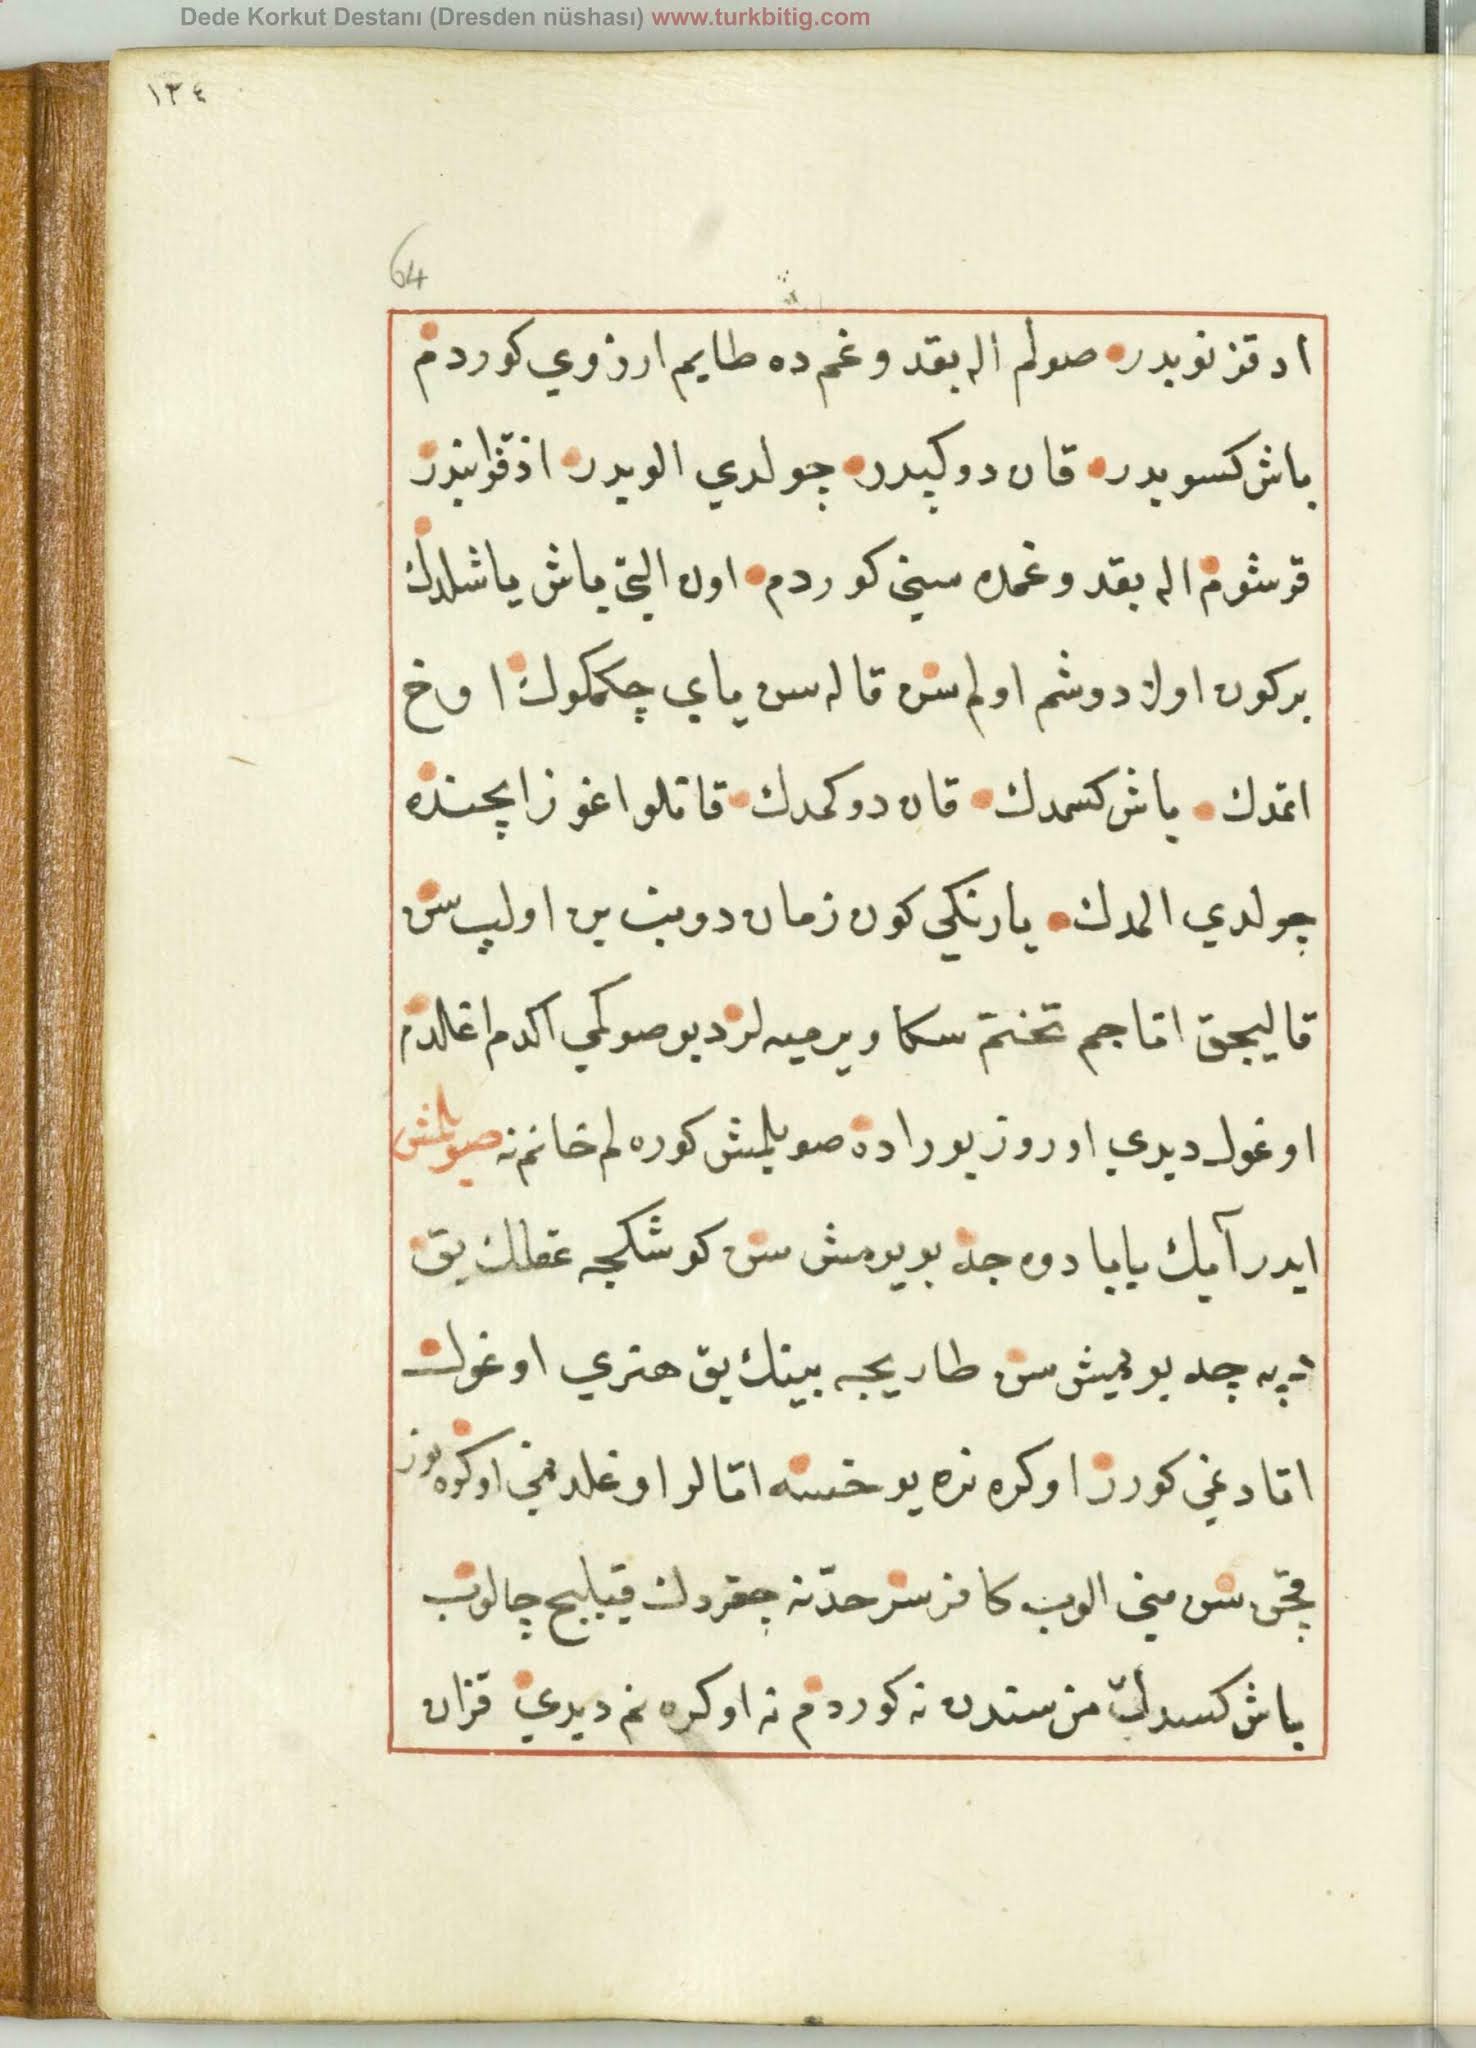 Dede Korkut Destanı (Dresden nüshası) www.turkbitig.com
١٣٤
64
اد قزنوبدر صولم اله بقدوغم ده طايم ارزوي كوردم
باش كسوبدر قان دوكپدر چولدي الوبدر اد قزانبدر
قرشوم اله بقدوغمده سيني كوردم اون التي ياش ياشلدك
بر كون اولا دوشم اولم سن قاله سن ياي چكمدك اوخ
اتمدك باش كسمدك قان دوكمدك قانلو اغوز ايچنده
چولدي المدك يارنكي كون زمان دونب بن اولپ سن
قاليجق تاجم تختم سكا ويرميه لر ديو صوكمي اكدم اغلدم
اوغول ديدي اوروز بوراده صويلمش كوره لم خانم نه صويلمش
ايدر آ بك بابا دوه جه بويومش سن كوشكجه عقلك يق
دپه جه بويمش سن طاريجه بينك يق هنري اوغول
اتادنمي كورر اوكره نر يوخسه اتالر اوغلدنمي اوكره نور
قچن سن مني الوب كافر سرحدّنه چقردك قيليج چالوب
باش كسدك من سندن نه كوردم نه اوكره نم ديدي قزان